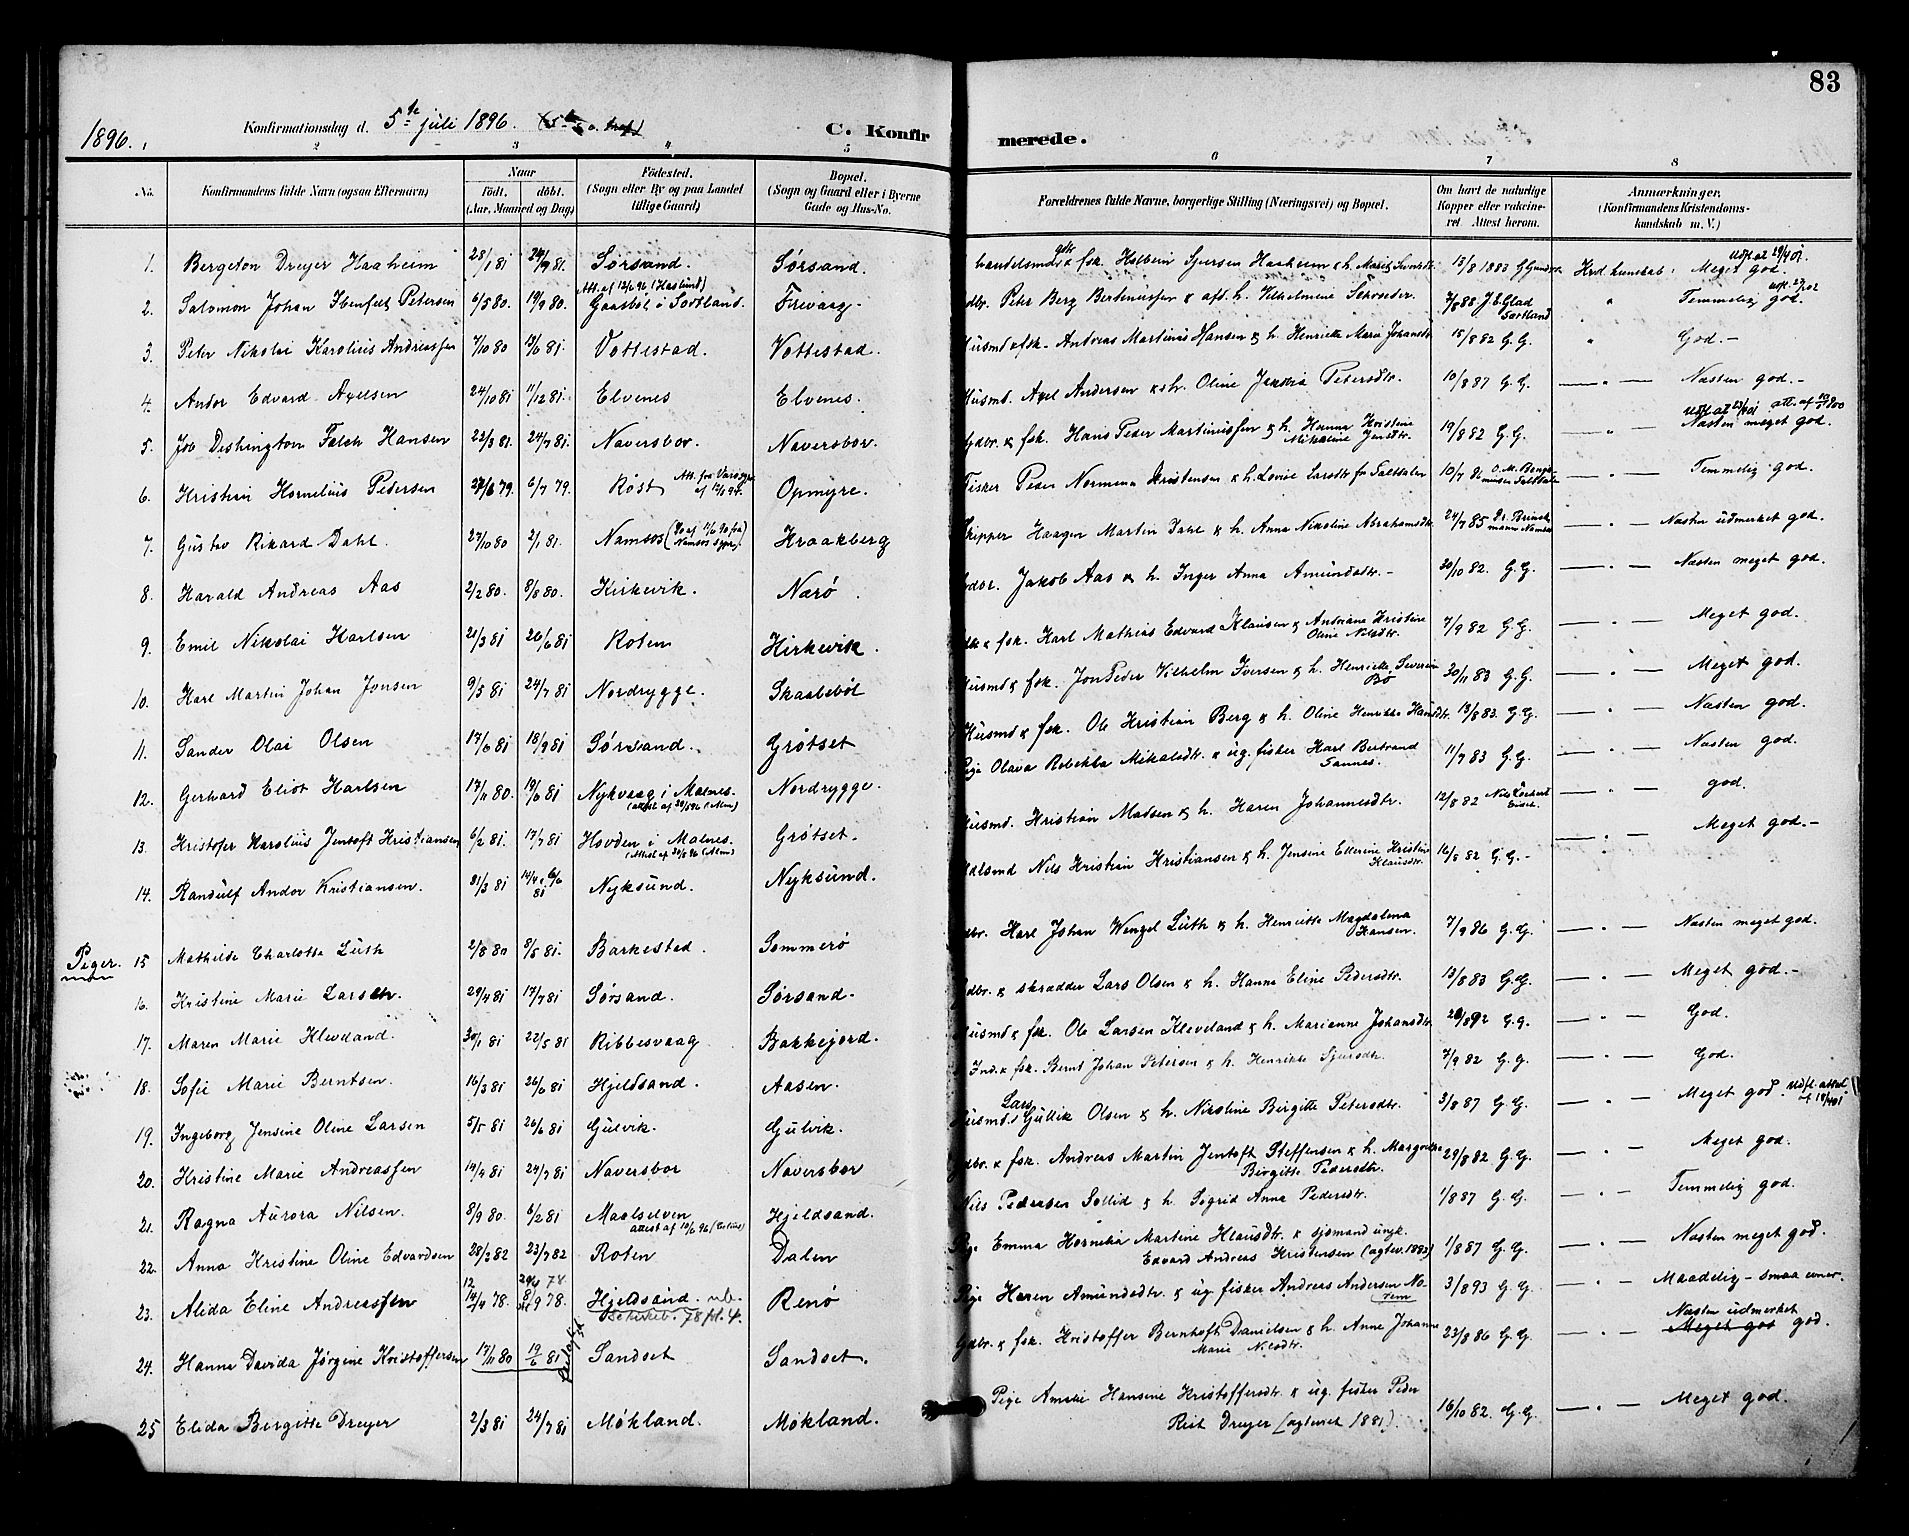 83
1896.
Konfirmationsdag d. 5te juli 1896.
C. Konfirmerede.
1 2 3 4 5 6 7 8
No.
Konfirmandens fulde Navn (ogsaa Efternavn)
Naar
født. døbt.
(Aar, Maaned og Dag)
Fødested.
(Sogn eller By og paa Landet tillige Gaard)
Bopæl.
(Sogn og Gaard eller i Byerne Gade og Hus-No.
Forældrenes fulde Navne, borgerlige Stilling (Næringsvei) og Bopæl.
Om havt de naturlige Kopper eller vakcineret. Attest herom.
Anmærkninger.
(Konfirmandens Kristendomskundskab m. V.)
1. Bergeton Dreyer Haaheim 28/1 81 24/9 81. Sørsand. Sørsand. fsk. Holbein Sjursen Haaheim & h. 13/8 1883 Krd. kunskab: Meget god. Udst. at. 29/4 01.
2. Salomon Johan Ibenfelt Petersen 6/5 80. 19/9 80. Gaasbøl i Sortland. Att. af 12/6 96 (Haslund) Frevaag. Peter Berg Berteniussen & aft. h. Vilhelmine Schrøder. 7/8 88. J. E. Glad Sortland " Temmelig god.
3. Peter Nikolai Karolius Andreassen 7/10 80 12/6 81. Vottestad. Vottestad. Husmd & fsk. Andreas Martinus Hansen & h. Henriette Marie Johansdtr 15/8 82 G. G. " God.-
4. Andor Edvard Axelsen 24/10 81 11/12 81. Elvenes. Elvenes. Husmd. Axel Andersen & h. Oline Jakobia Petersdtr. 10/8 87 G. G. — " — Næsten god.-
5. Job Dishington Falch Hansen 22/3 81. 24/7 81. Naversbor. Naversbor. Gdbr. & fsk. Hans Peder Martinussen & h. Hanna Kristine Mikaline Jensdtr. 19/8 82 G. G. " Næsten meget god.
6. Kristian Hornelius Pedersen 27/6 79. 6/7 79. Røst Opmyre. Fisker Peder Normann Kristensen & h. Lovise Larsdtr fr. Saltdalen 10/7 — " — Temmelig god.
7. Gustav Rikard Dahl. 27/10 80 2/1 81. Namsos Kraakberg Skipper Haagen Martin Dahl & h. Anna Nikoline Abrahamsdtr. 24/7 85 — " — Næsten udmerket god.
8. Harald Andreas Aas 2/2 80. 8/8 80. Kirkevik. Nærø. Gdbr. Jakob Aas & h. Inger Anna Amundsdtr.- 20/10 82. G. G. — " — Næsten meget god.
9. Emil Nikolai Karlsen 21/3 81 26/6 81 Roten Kirkevik. fsk. Karl Mathias Edvard Klausen & Andriane Kristine Oline Nilsdtr. 7/9 82 G. G. — " — Meget god.
10. Karl Martin Johan Jonsen 9/5 81 24/7 81 Nordrygge. Skaabebøl Husmd & fsk. Jon Peder Vilhelm Iversen & h. Henriette Severin Bø 30/11 83 G. G. — " — Meget god.
11. Sander Olai Olsen 17/6 81 18/9 81 Sørsand. Grøtset Husmd & fsk. Ole Kristian Berg & h. Oline Henrikke Hansdtr. 13/8 83. G. G. — " — Næsten god.
12. Gerhard Eliot Karlsen 17/11 80. 19/6 81 Nykvaag i Malnes. Nordrygge. Pige Olava Rebekka Mikalsdtr. & ug. fisker Karl Bertrand Sannes. 11/7 83 G. G. — " — Næsten god.
13. Kristofer Karolius Jentoft Kristiansen 6/2 81. 17/7 81 Hovden i Malnes. Grøtset. Husmd. Kristian Madsen & h. Karen Johannesdtr. 12/8 82 — " — god.
14. Randulf Andor Kristiansen. 31/3 81 Nyksund. Nyksund. Nils Kristian Kristiansen & h. Jensine Ellerine Kristine Klausdtr. 16/8 82 G. G.- — " — Meget god.-
Piger.
15 Mathilde Charlotte Luth 2/8 80 8/5 81. Barkestad. Sommerø Gdbr. Karl Johan Wenzel Luth & h. Henriette Magdalena Hansen. 7/9 86 G. G. — " — Næsten meget god.
16. Kristine Marie Larsdtr. 29/4 81 17/7 81 Sørsand. Sørsand. Gdbr. & skrædder Lars Olsen & h. Hanna Eline Pedersdtr. 13/8 83 G. G. — " — Meget god.-
17. Maren Marie Klevland. 30/1 81 22/5 81 Ribbesvaag Bakkejord. Husmd & fsk. Ole Larsen Kleveland & h. Marianne Johansdtr. G. G. — " — God.
18. Sofie Marie Berntsen. 16/3 81 26/6 81 Hjeldsand. Aasen. Ind. & fsk. Bernt Johan Petersen & h. Henrikke Sjursdtr. 7/9 82 G. G. — " — God.
19. Ingeborg Jensine Oline Larsen 5/5 81 26/6 81 Gulvik. Gulvik. Husmd. Lars Gullik Olsen & h. Nikoline Birgitte Petersdtr. 3/8 87 G. G. — " — Meget god. Udst. attest
20. Kristine Marie Andreassen 14/4 81 24/7 81 Naversbor Naversbor Gdbr. & fsk. Andreas Martin Jentoft Steffensen & h. Margrethe Birgitte Pedersdtr. 29/8 82. G. G. — " — Meget god.
21. Ragna Aurora Nilsen. 8/9 80. 6/2 81 Maalselven Hjeldsand. Nils Pedersen Sollid & h. Sigrid Anna Pedersdtr. 1/8 87 G. G. — " — Temmelig god.
22. Anna Kristine Oline Edvardsen 28/3 82 23/7 82 Roten Dalen Pige Emma Kornelia Martine Klausdtr. & sjømand ungk. Edvard Andreas Kristensen (agtev. 1883) 1/8 87 G. G. — " — Næsten meget god.
23. Alida Eline Andreassen 14/4 78. 8/9 78. Hjeldsand. nb. Renø Pige Karen Amundsdtr. & ug. fisker Andreas Andersen Norem 3/8 93 G. G. — " — Maadelig - smaa evner.
24. Hanna Davida Jørgine Kristoffersen 17/11 80 19/6 81 Sandset Sandset. Gdbr. & fsk. Kristoffer Bernhoft Danielsen & h. Anne Johanne Marie Nilsdtr. 23/8 86 G. G. — " — Næsten udmerket Meget god god.
25 Elida Bergitte Dreyer 2/3 81 24/7 81 Møkland. Møkland. Pige Amalie Hansine Kristoffersdtr. & ug. fisker Peder Rist Dreyer (agteviet 1881). 16/10 82. G. G. — " — Meget god.